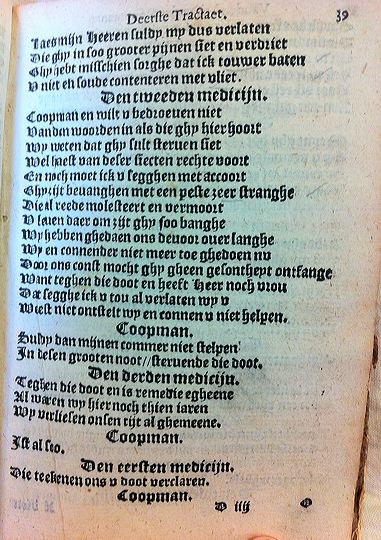 Deerste Tractaet. 39
Laes mijn Heeren suldy my dus verlaten
Die ghy in soo grooter pijnen siet en verdriet
Ghy hebt misschien sorghe dat ick touwer baten
V niet en soude contenteren met vliet.
Den tweeden medicijn.
Coopman en wilt v bedroeuen niet
Vanden woorden in als die ghy hier hoort
Wy weten dat ghy sult steruen siet
Wel haest van deser siecten rechte voort
En noch moet ick v segghen met accoort
Ghy zijt beuanghen met een peste zeer stranghe
Die al reede molesteert en vermoort
V leuen daer om zijt ghy soo banghe
Wy hebben ghedaen ons deuoor ouer langhe
Wy en connender niet meer toe ghedoen nv
Door ons const mocht ghy gheen gesontheyt ontfange
Want teghen die doot en heeft Heer noch vrou
Dat segghe ick v tou al verlaten wy v
Wiest niet ontstelt wy en connen v niet helpen.
Coopman.
Suldy dan mijnen commer niet stelpen
In desen grooten noot // steruende die doot.
Den derden medicijn.
Teghen die doot en is remedie egheene
Al waren wy hier noch thien iaren
Wy verliesen onsen tijt al ghemeene.
Coopman.
Ist al soo.
Den eersten medicijn.
Die teekenen ons v doot verclaren.
Coopman.
D iiij